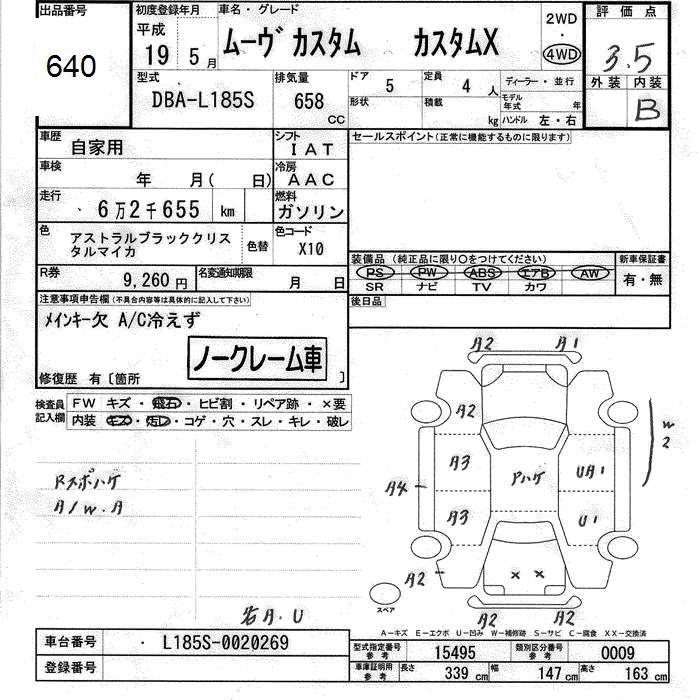 出品番号
640
初度登録年月
平成
19 5 月
車名・グレード
ムーヴ カスタム カスタムX
2WD
・
4WD
評価点
3.5
外装 内装
B
型式
DBA-L185S
排気量
658
CC
ドア 5
形状
定員 4 人
積載 kg
ディーラー・並行
モデル年式 年
ハンドル 左・右
車歴 自家用
シフト IAT
車検 年 月( 日)
冷房 AAC
走行 6万2千655 km
燃料 ガソリン
色 アストラルブラッククリスタルマイカ
色替
色コード X10
R券 9,260円
名変通知期限 月 日
セールスポイント(正常に機能するものに限ります)
装備品(純正品に限り○をつけてください)
PS PW ABS エアB AW
SR ナビ TV カワ
新車保証書
有・無
後日品
注意事項申告欄(不具合内容等は具体的に記入して下さい)
メインキー欠 A/C冷えず
ノークレーム車
修復歴 有〔箇所 〕
検査員記入欄
FW キズ・飛石・ヒビ割・リペア跡・×要
内装 キズ・汚レ・コゲ・穴・スレ・キレ・破レ
Rスポハゲ
A/W.A
A2 A1
A2
A3 Pハゲ UA1
W2
A4
A3 U1
A2
× ×
スペア
A2 A2
A.U
A-キズ E-エクボ U-凹み W-補修跡 S-サビ C-腐食 XX-交換済
車台番号 ・ L185S-0020269
登録番号
型式指定番号 参考 15495
類別区分番号 参考 0009
車庫証明用 参考
長さ 339 cm 幅 147 cm 高さ 163 cm